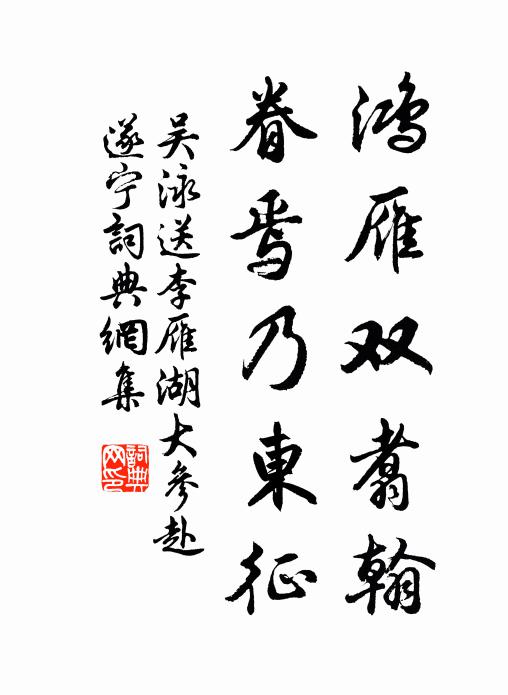 鸿雁双翥翰
眷焉乃東征
吴泳送李雁湖大参赴
遂宁詞典網集
詞典网印